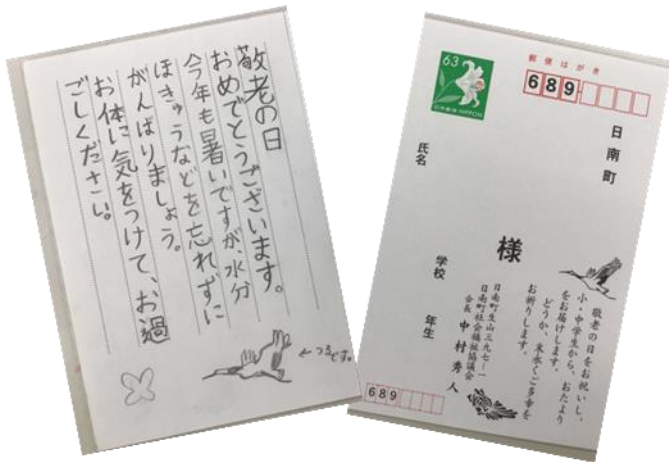 敬老の日
おめでとうございます。
今年も暑いですが、水分
ほきゅうなどを忘れずに
がんばりましょう。
お体に気をつけて、お過
ごしください。
←つるです。
郵便はがき
63
日本郵便 NIPPON
689
日南町
氏名
様
学校 年生
敬老の日をお祝いし、
小・中学生から、おたより
をお届けします。
どうか、末永くご多幸を
お祈りします。
日南町生山三九七-一
日南町社会福祉協議会
会長 中村秀人
689